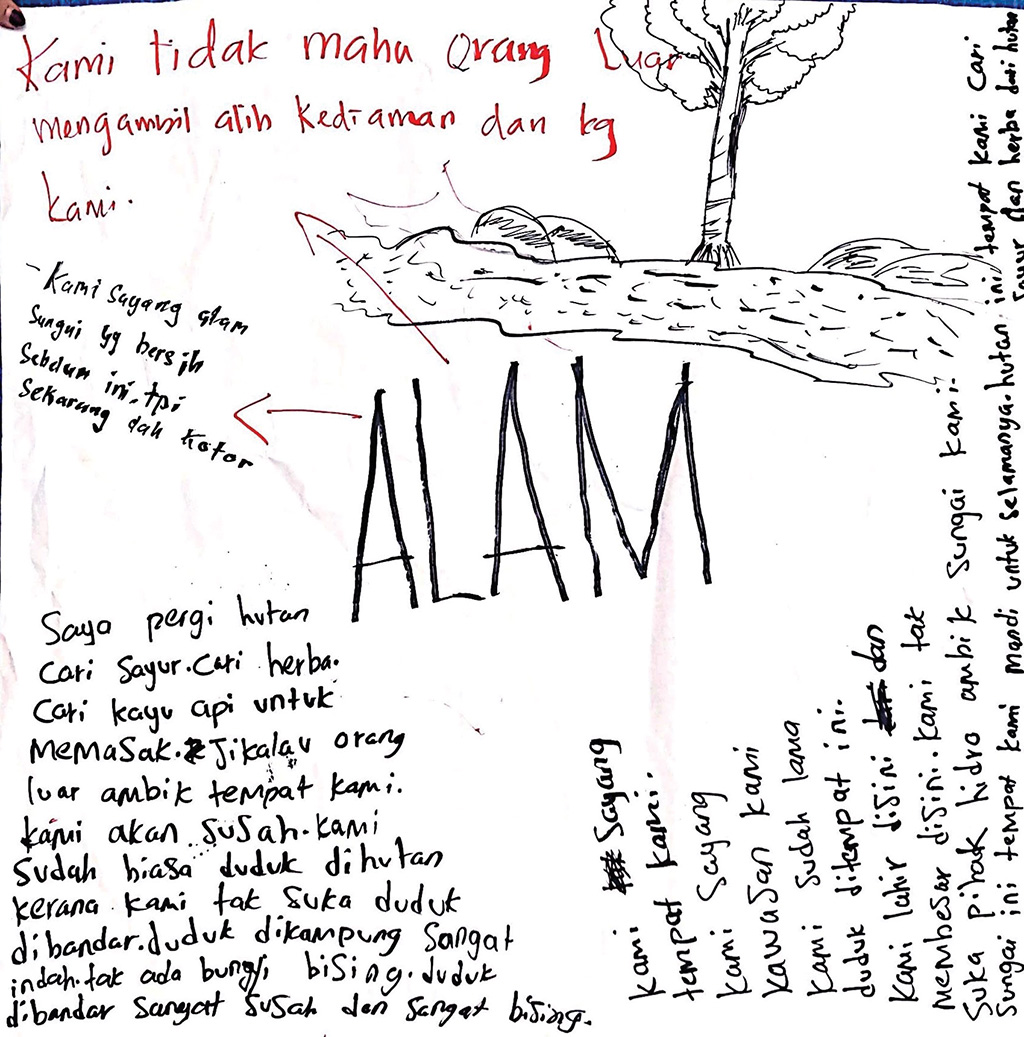 Kami tidak mahu orang Luar
mengambil alih kediaman dan kg
kami.
Kami Sayang alam
Sungai yg bersih
Sebelum ini. tpi
Sekarang dah kotor
ALAM
Saya pergi hutan
Cari Sayur. Cari herba.
Cari kayu api untuk
memasak. Jikalau orang
luar ambik tempat kami.
kami akan susah. kami
Sudah biasa duduk dihutan
kerana kami tak suka duduk
dibandar. duduk dikampung Sangat
indah. tak ada bunyi bising. duduk
dibandar Sangat susah dan sangat bising.
Kami Sayang
tempat kami.
Kami Sayang
kawasan kami
Kami Sudah lama
duduk ditempat ini.
Kami lahir disini dan
membesar disini. Kami tak
Suka pihak hidro ambik Sungai kami.
Sungai ini tempat kami mandi untuk selamanya. hutan ini tempat kami cari
Sayur dan herba dari hutan